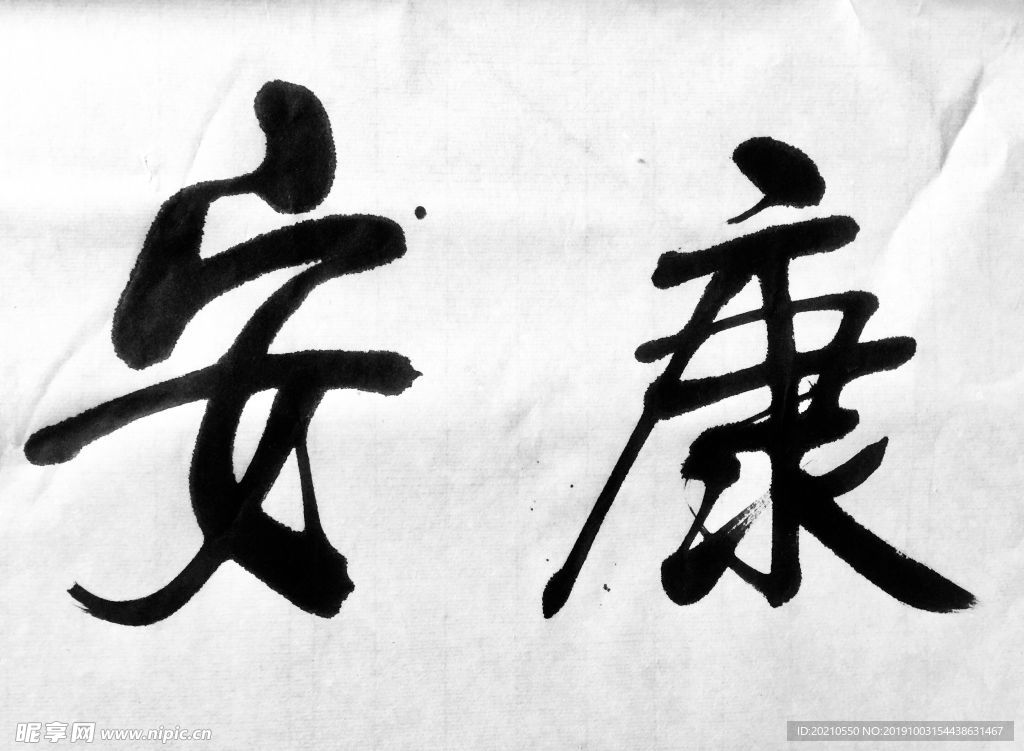 安康
昵享网 www.nipic.cn
ID:20210550 NO:20191003154438631467